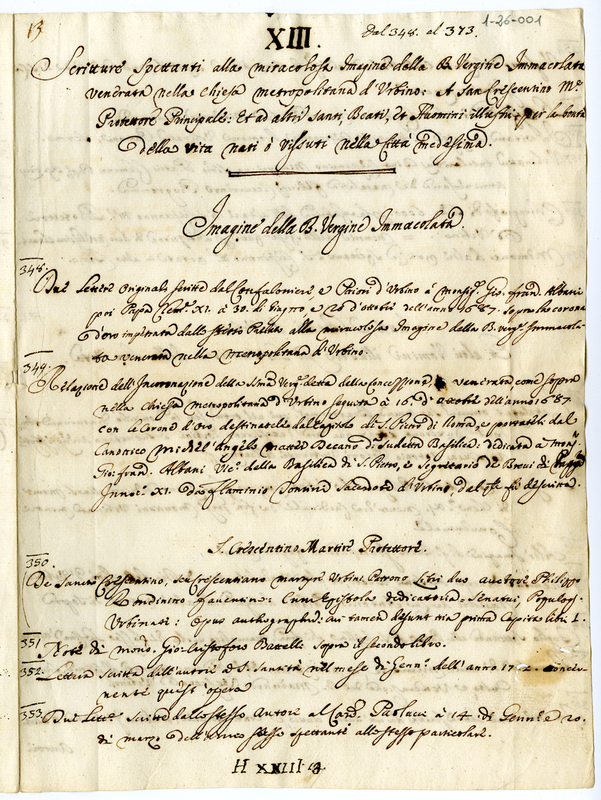 13
XIII.
Dal 348. al 373.
1-26-001
Scritture Spettanti alla miracolosa Imagine della B. Vergine Immacolata
venerata nella Chiesa metropolitana d'Urbino: A San Crescentino Mre
Protettore Principale: Et ad altri Santi, Beati, et Huomini illustri per la bontà
della vita nati ò vissuti nella Città medesima.
Imagine della B. Vergine Immacolata.
348.
Due lettere originali scritte dal Confaloniere, e Priori d'Urbino à Monsigr. Gio: Fran. Albani
poi Papa Clem. XI. à 30. di Giugno, e 20 d'ottobre dell'anno 1687. sopra la corona
d'oro impetrata dallo stesso Prelato alla miracolosa Imagine della B. verge Immacola-
ta venerata nella metropolitana d'Urbino.
349.
Relazione dell'Incoronazione della Sma Verge detta della Concessione, venerata come sopra
nella Chiesa metropolitana d'Urbino seguita à 16. di ottobre dell'anno 1687.
con le Corone d'oro destinate dal Capitolo di S. Pietro di Roma, e portateli dal
Canonico Michel'Angelo Mattei Decano di sudetta Basilica: dedicata à Monsr
Gio: Fran. Albani Vico della Basilica di S. Pietro, e Segretario de Brevi di
Innoc. XI. da Flaminio Sacerdote d'Urbino, dal qle fù descritta.
S. Crescentino Martire Protettore.
350.
De Sancto Crescentino, seu Crescentiano martyre Urbini Patrono Libri duo auctore Philippo
Rondinino Faventino: Cum Epistola dedicatoria Senatui, Populoq.
Urbinati: opus authographum: cui tamen desunt tria prima Capita libri I.
351.
Note di monsr. Gio: Cristoforo Battelli sopra il secondo libro.
352.
Lettera scritta dall'autore à S. Santità nel mese di Genn. dell'anno concer-
nente quest'opera
353.
Due Lette scritte dallo stesso Autore al Card. Paolucci à 14 di Genn. e 20.
di marzo dell'anno stesso spettanti allo stesso particolare.